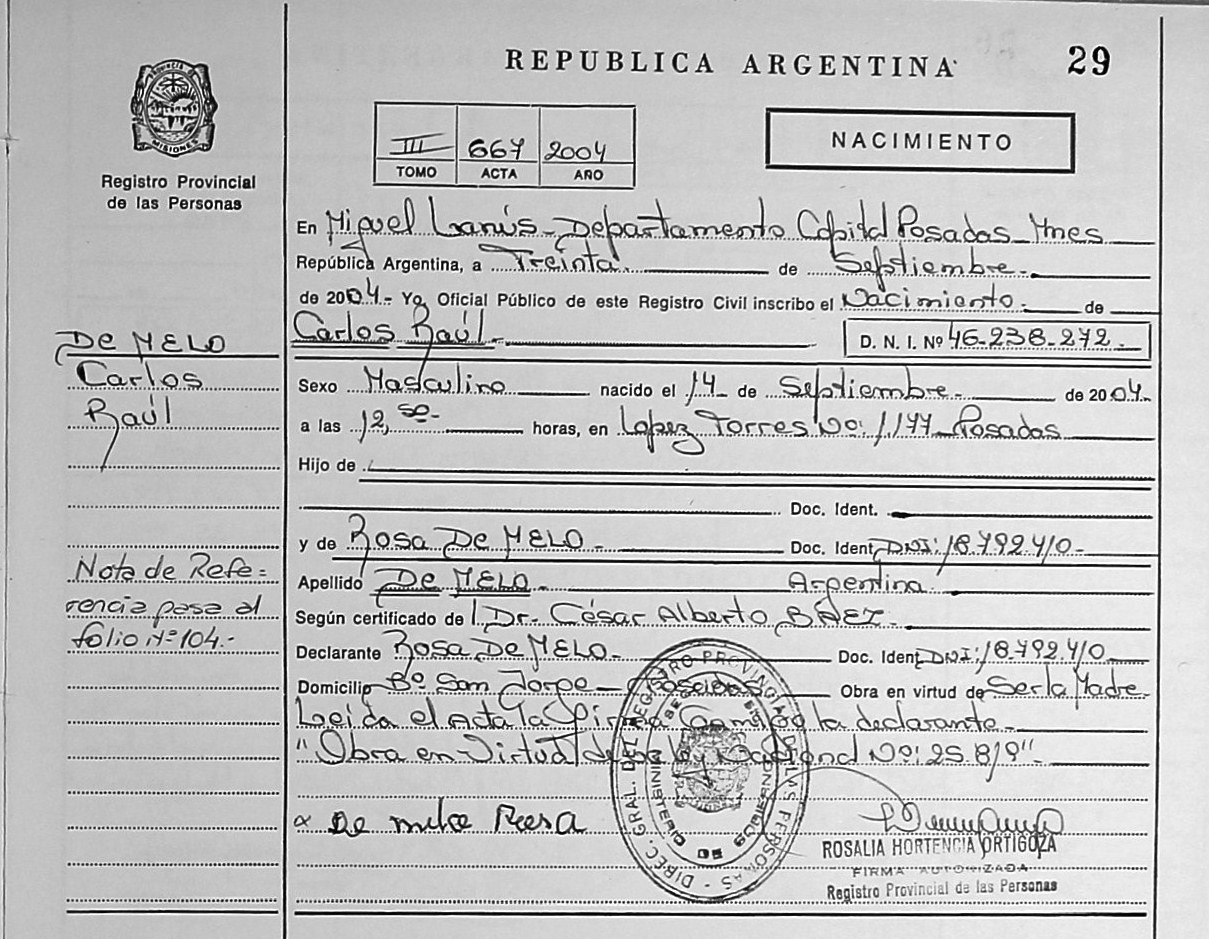 REPUBLICA ARGENTINA
29
PROVINCIA DE MISIONES
Registro Provincial
de las Personas
III 667 2004
TOMO ACTA AÑO
NACIMIENTO
En Miguel Lanús - Departamento Capital Posadas - Mnes
República Argentina, a Treinta de Septiembre.
de 2004.- Yo, Oficial Público de este Registro Civil inscribo el Nacimiento. de
Carlos Raúl.
D. N. I. Nº 46-238-272.
De MELO
Carlos
Raúl
Sexo Masculino nacido el 14 de Septiembre. de 2004.
a las 12,50. horas, en Lopez Torres No: 1.177 Posadas
Hijo de
Doc. Ident.
y de Rosa De MELO. Doc. Ident. DNI: 18.792.410.
Apellido De MELO. Argentina
Según certificado de l Dr. César Alberto BÁEZ.
Declarante Rosa De MELO. Doc. Ident. DNI: 18.792.410
Domicilio Bº San Jorge - Posadas Obra en virtud de Ser la Madre.
Leida el Acta la Firma Conmigo la declarante.
"Obra en Virtud de la Nacional No: 25.819"
Nota de Refe=
rencia pasa al
folio Nº 104.-
De melo Rosa
DIREC. GRAL. DEL REGISTRO PROVINCIAL DE LAS PERSONAS
MINISTERIO DE GOBIERNO
ROSALIA HORTENCIA ORTIGOZA
FIRMA AUTORIZADA
Registro Provincial de las Personas